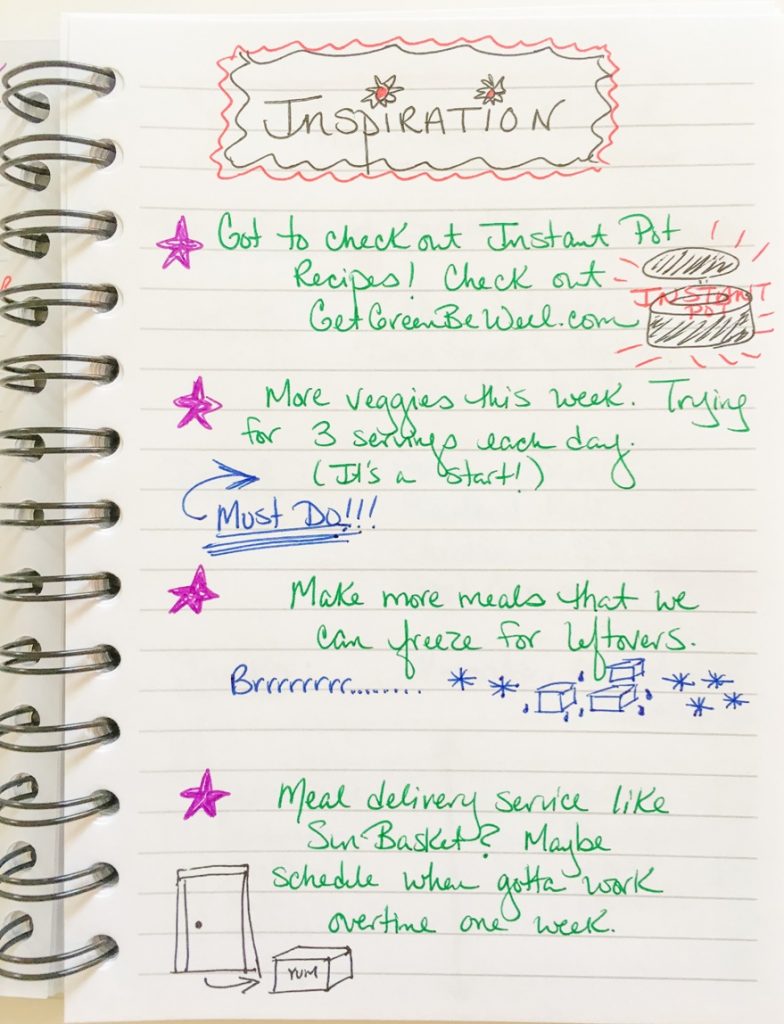 INSPIRATION
Got to check out Instant Pot
Recipes! Check out
GetGreenBeWell.com
INSTANT
POT
More veggies this week. Trying
for 3 servings each day.
(It's a start!)
Must Do!!!
Make more meals that we
can freeze for leftovers.
Brrrrrrrr........
Meal delivery service like
Sun Basket? Maybe
schedule when gotta work
overtime one week.
YUM